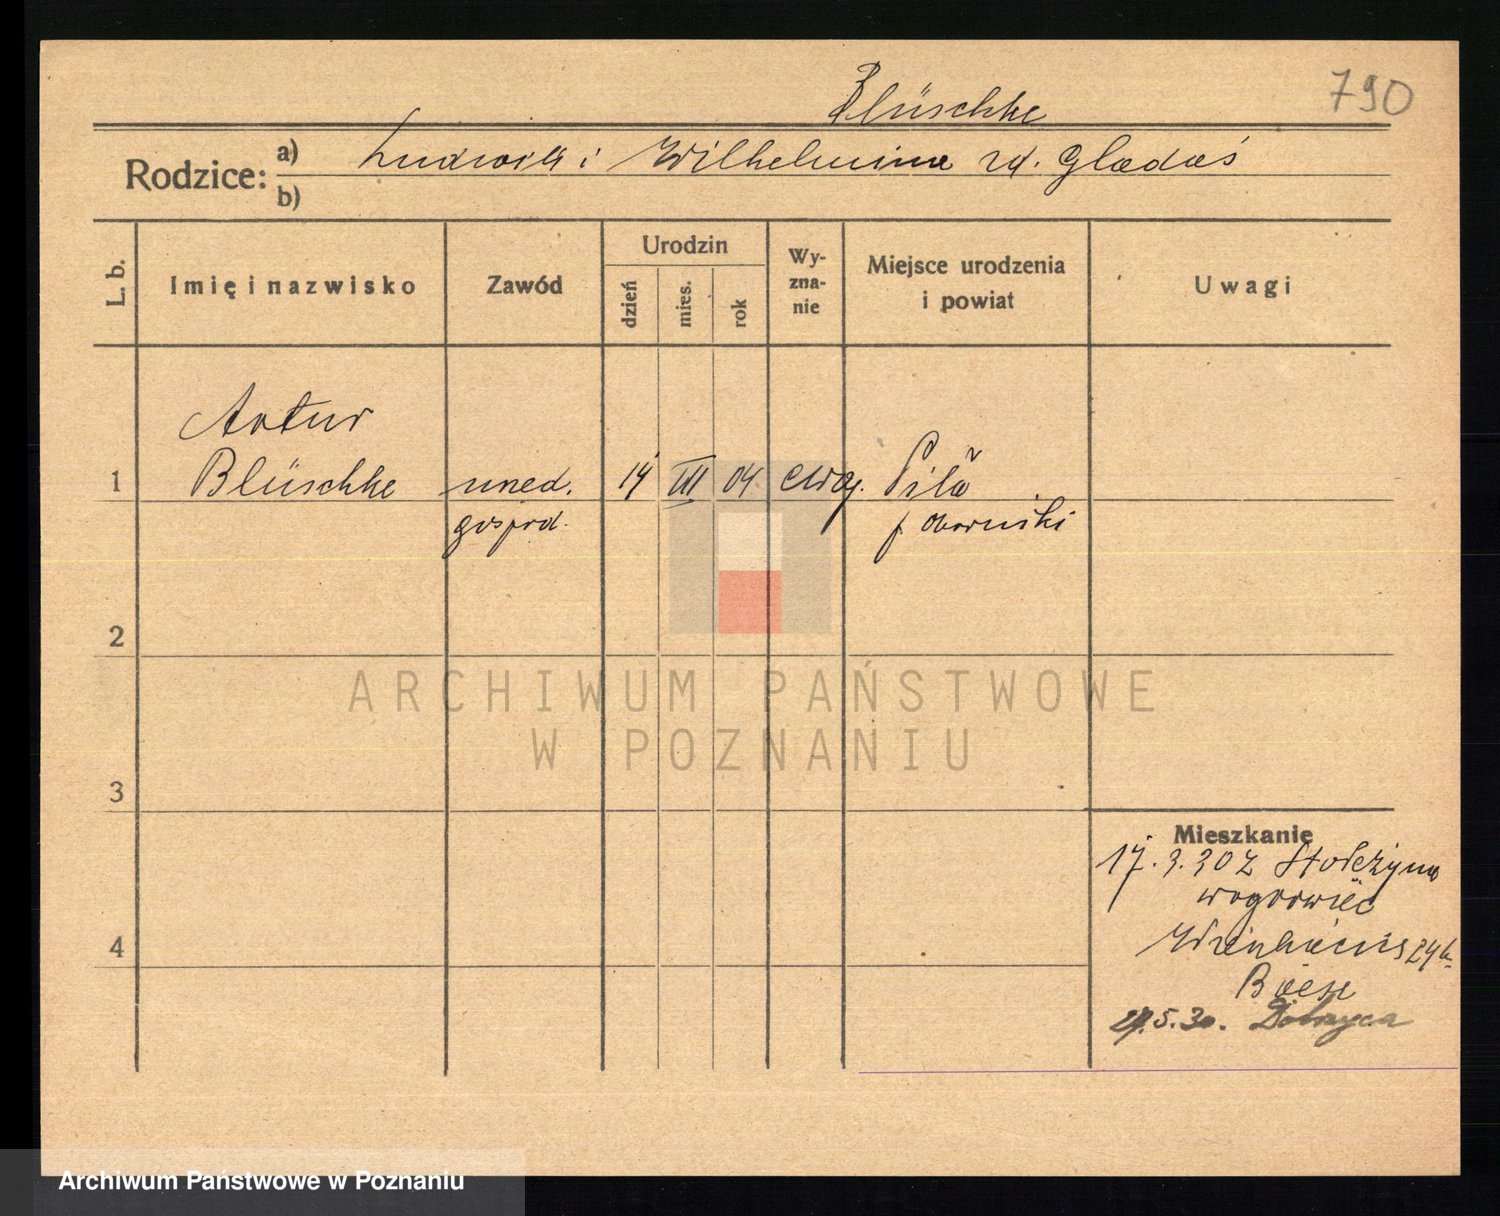 Blüschke
790
Rodzice: a) Ludwik i Wilhelmina zd. Gladaś
b)
L. b.
Imię i nazwisko
Zawód
Urodzin
dzień
mies.
rok
Wy-
zna-
nie
Miejsce urodzenia
i powiat
Uwagi
Artur
1 Blüschke uned. 14 III 04. ewg. Piła
gospod. p. obornicki
2
ARCHIWUM PAŃSTWOWE
W POZNANIU
3
Mieszkanie
17.3.30 z
wągrowiec
4
24
29.5.30. Dobrzyca
Archiwum Państwowe w Poznaniu